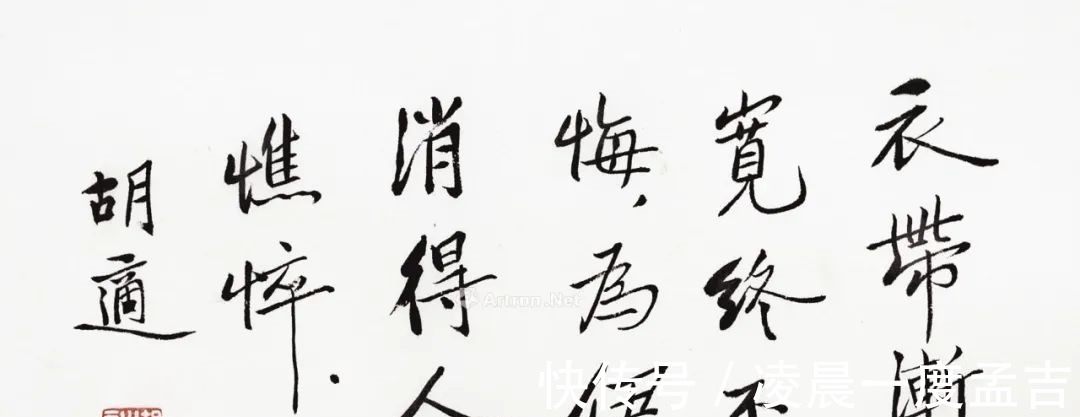 衣帶漸
寬終不
悔，為伊
消得人
憔悴．
胡適
Artron.Net
快传号 / 凌晨一度孟吉